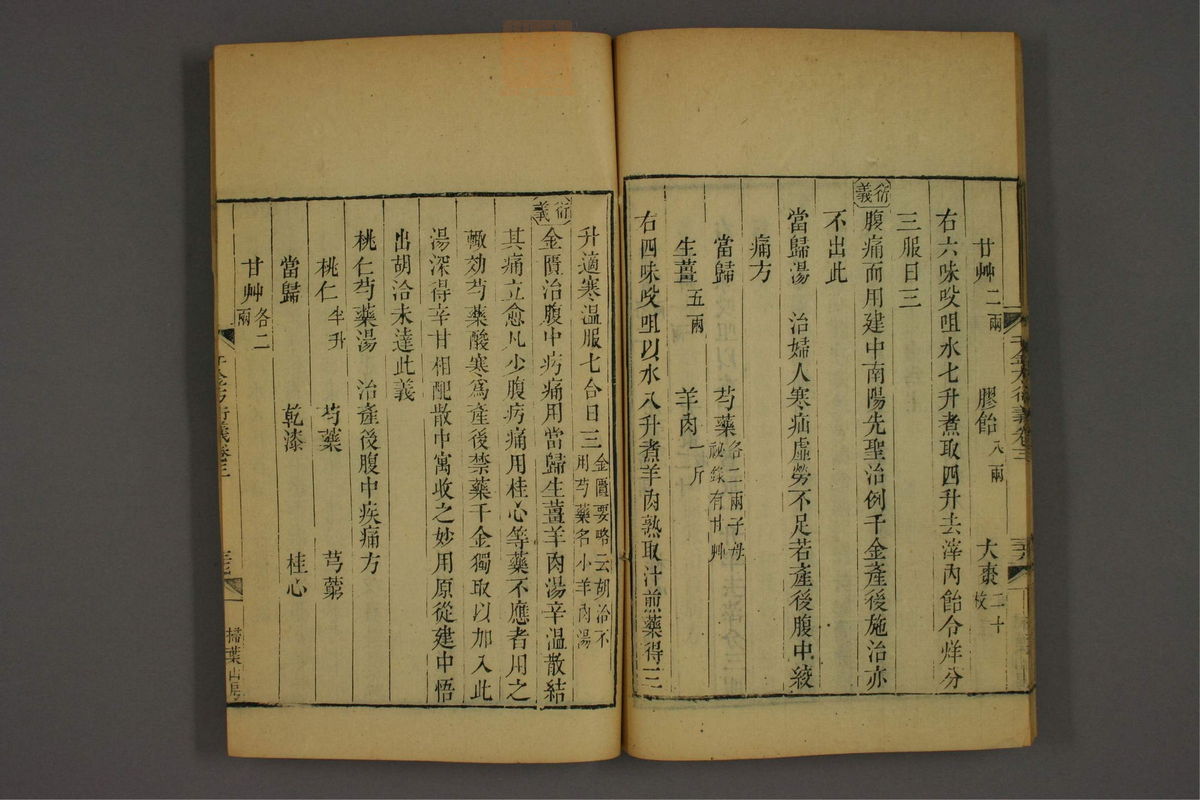 甘艸二兩　膠飴八兩　大棗二十枚
右六味㕮咀水七升煮取四升去滓內飴令烊分
三服日三
衍義
腹痛而用建中南陽先聖治例千金產後施治亦
不出此
當歸湯　治婦人寒疝虛勞不足若產後腹中絞
痛方
當歸　芍藥各二兩子母祕錄有甘艸
生薑五兩　羊肉一斤
右四味㕮咀以水八升煮羊肉熟取汁煎藥得三
升適寒溫服七合日三金匱要略云胡洽不用芍藥名小羊肉湯
衍義
金匱治腹中㽲痛用當歸生薑羊肉湯辛溫散結
其痛立愈凡少腹㽲痛用桂心等藥不應者用之
輒效芍藥酸寒爲產後禁藥千金獨取以加入此
湯深得辛甘相配散中寓收之妙用原從建中悟
出胡洽未達此義
桃仁芍藥湯　治產後腹中疾痛方
桃仁半升　芍藥　芎藭
當歸　乾漆　桂心
甘艸各二兩
千金方衍義卷三
掃葉山房